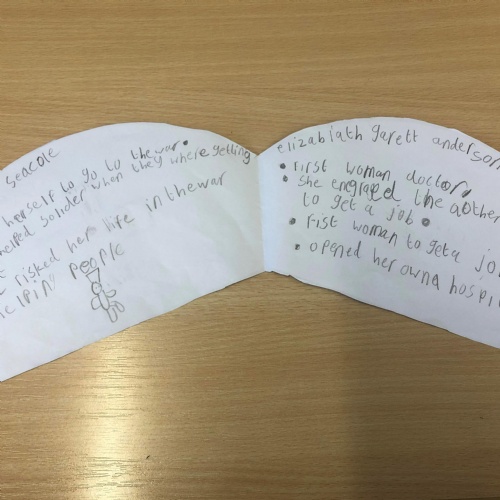 seacole
herself to go to the war.
helped solider when they where getting
risked her life in the war
helpin people
elizabiath garett anderson
• First woman doctor
• she engraged the other
to get a job •
• Fist woman to get a jo
• opened her owna hospi